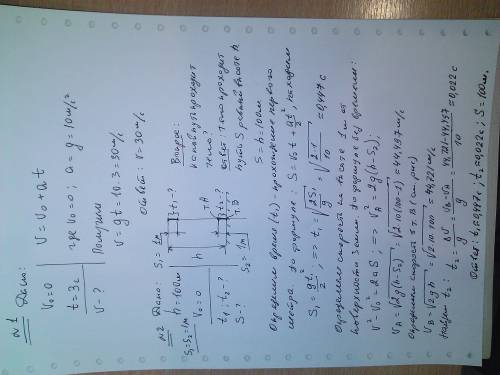 №1 Дано:
V₀=0
t=3c
V-?
V=V₀+at
где V₀=0; a=g=10м/с²
Получим
V=gt=10·3=30м/с
Ответ: V=30м/с
№2 Дано:
S₁=S₂=1м
h=100м
V₀=0
t₁; t₂-?
S-?
S₁=1м
t₁-?
h
т.А
t₂-?
т.В
S₂=1м
Вопрос:
какой путь проходит
тело?
Ответ: тело проходит
путь S равный высоте h
S=h=100м
Определим время (t₁) - прохождение первого
метра по формуле: S=V₀t+at²/2, находим
S₁=gt₁²/2, => t₁=√(2S₁/g)=√(2·1/10)=0,447c
Определим скорость на высоте 1м от
поверхности земли по формуле без времени:
V²-V₀²=2aS, => V_A²=2g(h-S₂);
V_A=√(2g(h-S₂))=√(2·10(100-1))=44,497м/с
Определим скорость в т.В (см. рис)
V_B=√(2gh)=√(2·10·100)=44,721м/с
Найдём t₂: t₂=ΔV/g=(V_B-V_A)/g=(44,721-44,497)/10=0,022c
Ответ: t₁=0,447c; t₂=0,022c; S=100м.